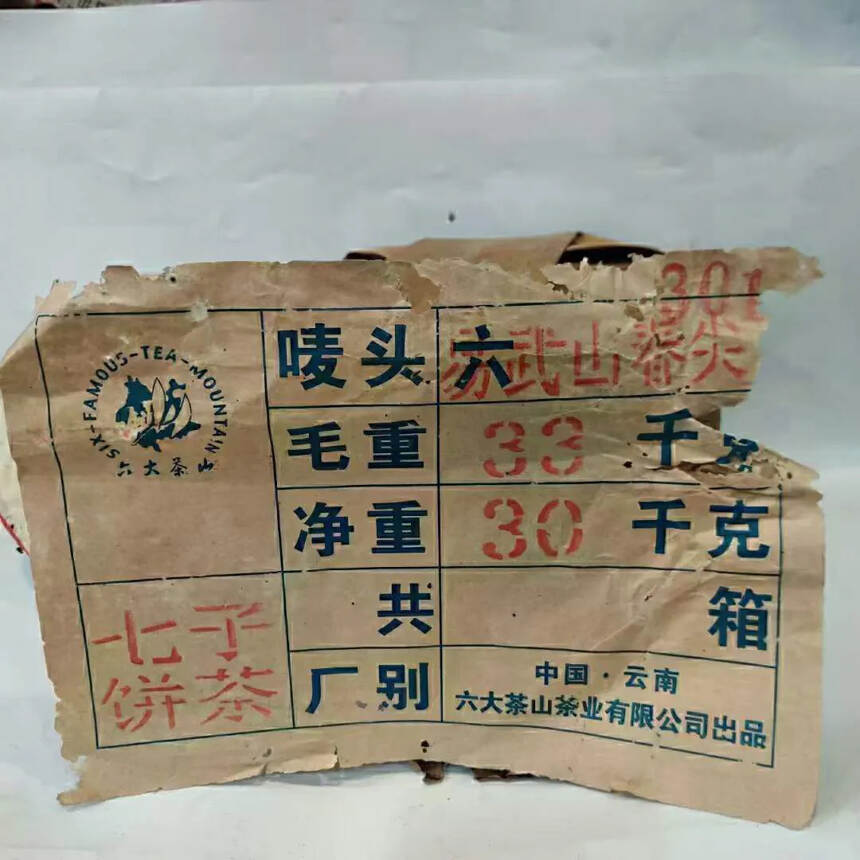 301
SIX-FAMOUS-TEA-MOUNTAIN
六大茶山
唛头 六 易武山春尖
毛重 33 千克
净重 30 千克
共 箱
七子
饼茶
厂别
中国·云南
六大茶山茶业有限公司出品